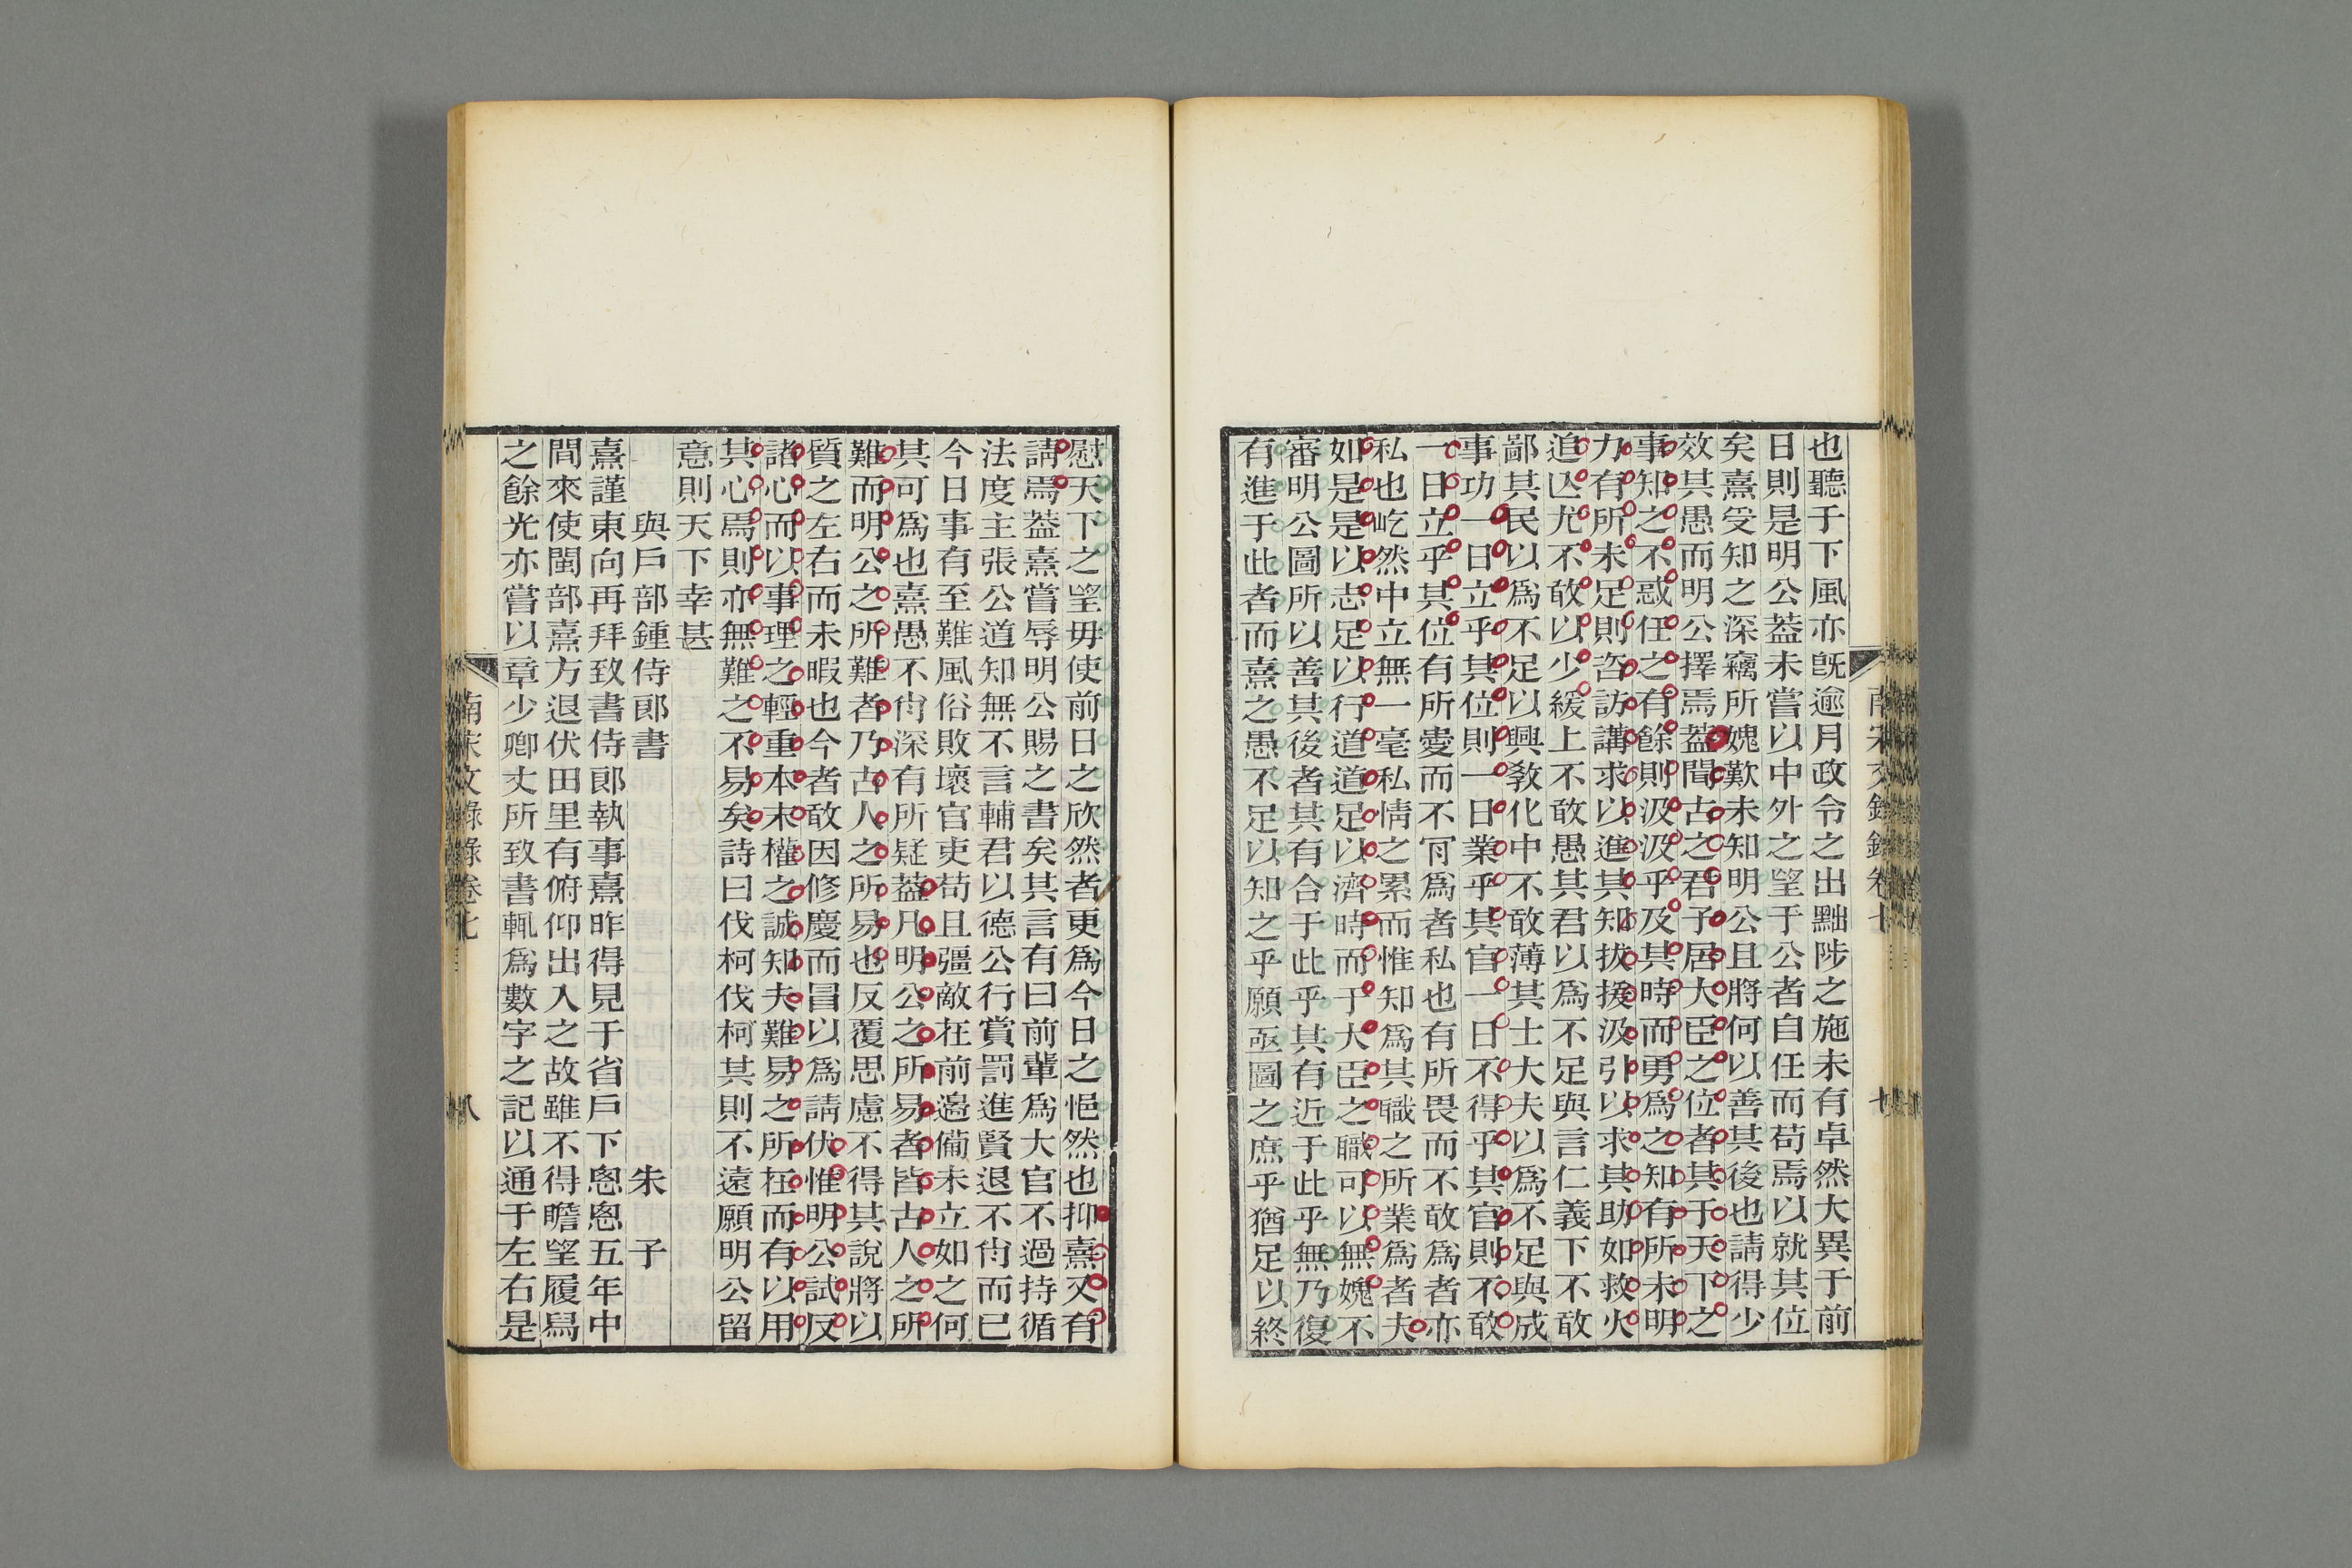 南宋文錄錄卷七
七
也聽于下風亦旣逾月政令之出黜陟之施未有卓然大異于前
日則是明公葢未嘗以中外之望于公者自任而苟焉以就其位
矣熹受知之深竊所媿歎未知明公且將何以善其後也請得少
效其愚而明公擇焉葢聞古之君子居大臣之位者其于天下之
事知之不惑任之有餘則汲汲乎及其時而勇爲之知有所未明
力有所未足則咨訪講求以進其知拔援汲引以求其助如救火
追亾尤不敢以少緩上不敢愚其君以爲不足與言仁義下不敢
鄙其民以爲不足以興敎化中不敢薄其士大夫以爲不足與成
事功一日立乎其位則一日業乎其官一日不得乎其官則不敢
一日立乎其位有所愛而不肎爲者私也有所畏而不敢爲者亦
私也屹然中立無一毫私情之累而惟知爲其職之所業爲者夫
如是是以志足以行道道足以濟時而于大臣之職可以無媿不
審明公圖所以善其後者其有合于此乎其有近于此乎無乃復
有進于此者而熹之愚不足以知之乎願亟圖之庶乎猶足以終
慰天下之望毋使前日之欣然者更爲今日之悒然也抑熹又有
請焉葢熹嘗辱明公賜之書矣其言有曰前輩爲大官不過持循
法度主張公道知無不言輔君以德公行賞罰進賢退不肖而已
今日事有至難風俗敗壞官吏苟且彊敵在前邊備未立如之何
其可爲也熹愚不肖深有所疑葢凡明公之所易者皆古人之所
難而明公之所難者乃古人之所易也反覆思慮不得其說將以
質之左右而未暇也今者敢因修慶而冒以爲請伏惟明公試反
諸心而以事理之輕重本末權之誠知夫難易之所在而有以用
其心焉則亦無難之不易矣詩曰伐柯伐柯其則不遠願明公留
意則天下幸甚
與戶部鍾侍郎書　朱子
熹謹東向再拜致書侍郎執事熹昨得見于省戶下悤悤五年中
間來使閩部熹方退伏田里有俯仰出入之故雖不得瞻望履舄
之餘光亦嘗以章少卿丈所致書輒爲數字之記以通于左右是
南宋文錄錄卷七
八